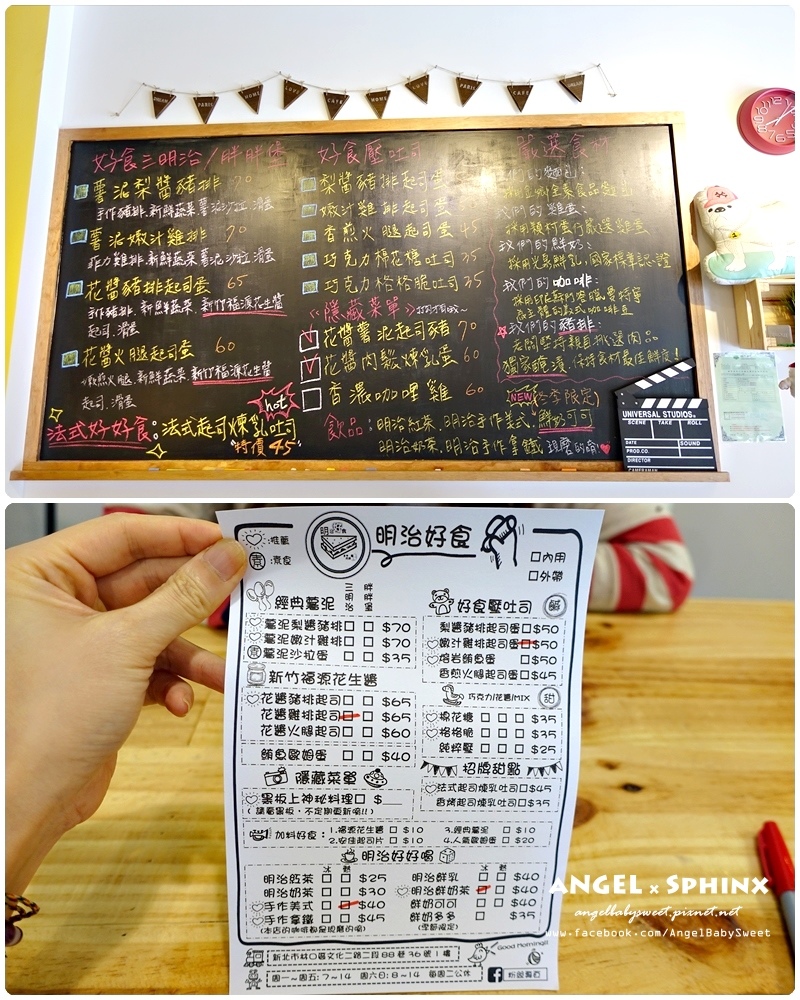 好食三明治/胖胖堡
薯泥梨醬豬排 70
手作豬排.新鮮蔬菜.薯泥沙拉.滑蛋
薯泥嫩汁雞排 70
菲力雞排.新鮮蔬菜.薯泥沙拉.滑蛋
花醬豬排起司蛋 65
手作豬排.新鮮蔬菜.新竹福源花生醬
起司.滑蛋
花醬火腿起司蛋 60
煎火腿.新鮮蔬菜.新竹福源花生醬
起司.滑蛋
hot
法式好好食:法式起司煉乳吐司
特價45
好食壓吐司
梨醬豬排起司蛋
嫩汁雞排起司蛋
香煎火腿起司蛋 45
巧克力棉花糖吐司 35
巧克力格格脆吐司 35
《隱藏菜單》
花醬薯泥起司豬 70
花醬肉鬆煉乳蛋 60
香濃咖哩雞 60
NEW (冬季限定)
飲品:明治紅茶.明治手作美式.鮮奶可可
明治奶茶.明治手作拿鐵 現磨的唷!
嚴選食材
我們的麵包:
我們的雞蛋:
我們的鮮奶:
我們的咖啡:
我們的豬排:
老闆堅持親自挑選肉品
獨家醃漬,保持食材最佳鮮度!
UNIVERSAL STUDIOS
SCENE TAKE ROLL
DATE SOUND
PROD.CO.
DIRECTOR
CAMERAMAN
:推薦
素:素食
明治好食
內用
外帶
經典薯泥 三明治 胖胖堡
薯泥梨醬豬排 $70
薯泥嫩汁雞排 $70
素 薯泥沙拉蛋 $35
新竹福源花生醬
花醬豬排起司 $65
花醬雞排起司 $65
花醬火腿起司 $60
鮪魚歐姆蛋 $40
隱藏菜單
黑板上神祕料理 $
(請看黑板,不定期更新唷!!)
好食壓吐司 鹹
梨醬豬排起司蛋 $50
嫩汁雞排起司蛋 $50
熔岩鮪魚蛋 $50
香煎火腿起司蛋 $45
巧克力/花醬/MIX 甜
棉花糖 $35
格格脆 $35
純粹壓 $25
招牌甜點
法式起司煉乳吐司 $45
香烤起司煉乳吐司 $35
加料好食: 1.福源花生醬 $10 3.經典薯泥 $10
2.安佳起司片 $10 4.人氣歐姆蛋 $20
明治好好喝
冰 熱 冰 熱
明治紅茶 $25 明治鮮乳 $40
明治奶茶 $30 明治鮮奶茶 $40
手作美式 $40 鮮奶可可 $40
手作拿鐵 $45 鮮奶多多 $35
(本店的咖啡都是現磨的唷) (季節限定)
新北市林口區文化二路二段88巷36號1樓
Good Morning!!
週一~週五:7~14 週六日:8~14 每週二公休
ANGEL x SPHINX
angelbabysweet.pixnet.net
www.facebook.com/AngelBabySweet